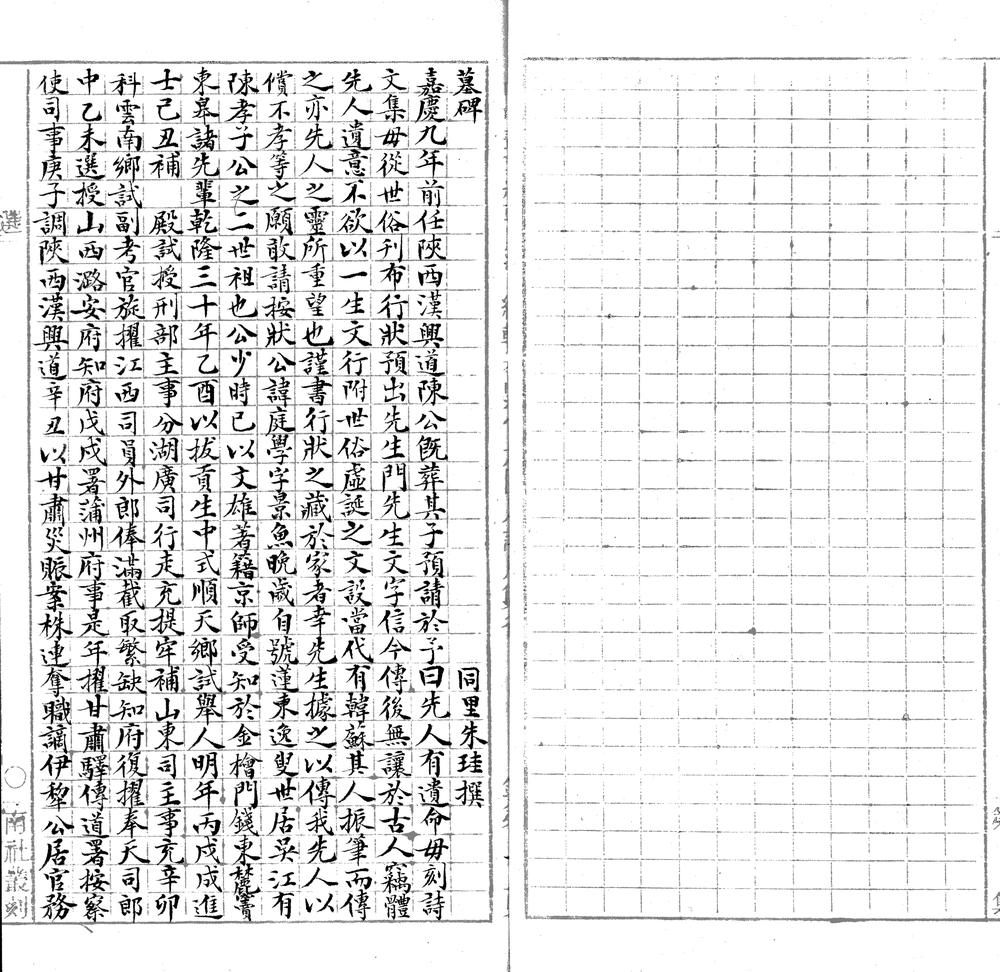 墓碑
同里朱珪撰
嘉慶九年前任陝西漢興道陳公既葬其子預請於予曰先人有遺命毋刻詩
文集毋從世俗刊布行狀預出先生門先生文字信今傳後無讓於古人竊體
先人遺意不欲以一生文行附世俗虛誕之文設當代有韓蘇其人振筆而傳
之亦先人之靈所重望也謹書行狀之藏於家者幸先生據之以傳我先人以
償不孝等之願敢請按狀公諱庭學字景魚晚歲自號蓮東逸叟世居吳江有
陳孝子公之二世祖也公少時已以文雄著籍京師受知於金檜門錢東麓竇
東皋諸先輩乾隆三十年乙酉以拔貢生中式順天鄉試舉人明年丙戌成進
士己丑補　殿試授刑部主事分湖廣司行走充提牢補山東司主事充辛卯
科雲南鄉試副考官旋擢江西司員外郎俸滿截取繁缺知府復擢奉天司郎
中乙未選授山西潞安府知府戊戌署蒲州府事是年擢甘肅驛傳道署按察
使司事庚子調陝西漢興道辛丑以甘肅災賑案株連奪職謫伊犂公居官務
選
南社叢刻
集